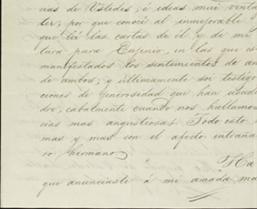 nas de Ustedes; é ideas mui venta
der; por que conocí al inmejorable
que las cartas de él y de mi
para Eugenio, en las que es
manifestados los sentimientos de a
de ambos; y últimamente soi testigo
ciones de generosidad que han
cabalmente cuando nos hallamos
cias mas angustiosas. Todo esto
mas y mas con el afecto entraña
hermano
Ha
que anunciaste á mi amada ma